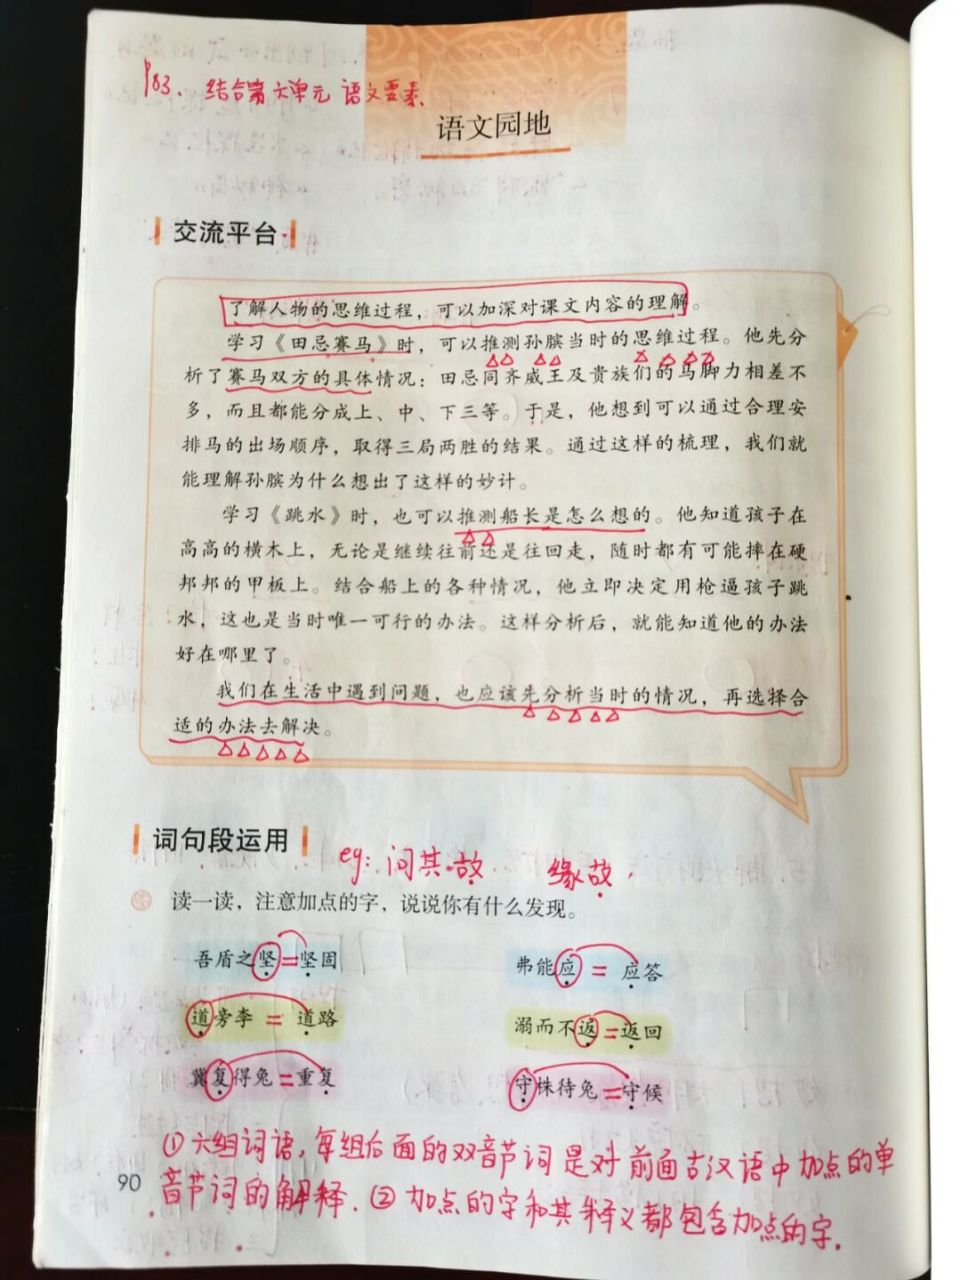 P83. 结合第六单元 语文要素
语文园地
交流平台
了解人物的思维过程，可以加深对课文内容的理解。
学习《田忌赛马》时，可以推测孙膑当时的思维过程。他先分
析了赛马双方的具体情况：田忌同齐威王及贵族们的马脚力相差不
多，而且都能分成上、中、下三等。于是，他想到可以通过合理安
排马的出场顺序，取得三局两胜的结果。通过这样的梳理，我们就
能理解孙膑为什么想出了这样的妙计。
学习《跳水》时，也可以推测船长是怎么想的。他知道孩子在
高高的横木上，无论是继续往前还是往回走，随时都有可能摔在硬
邦邦的甲板上。结合船上的各种情况，他立即决定用枪逼孩子跳
水，这也是当时唯一可行的办法。这样分析后，就能知道他的办法
好在哪里了。
我们在生活中遇到问题，也应该先分析当时的情况，再选择合
适的办法去解决。
词句段运用
eg: 问其故 缘故
读一读，注意加点的字，说说你有什么发现。
吾盾之坚=坚固 弗能应=应答
道旁李=道路 溺而不返=返回
冀复得兔=重复 守株待兔=守候
①六组词语，每组后面的双音节词是对前面古汉语中加点的单
音节词的解释.②加点的字和其释义都包含加点的字.
90